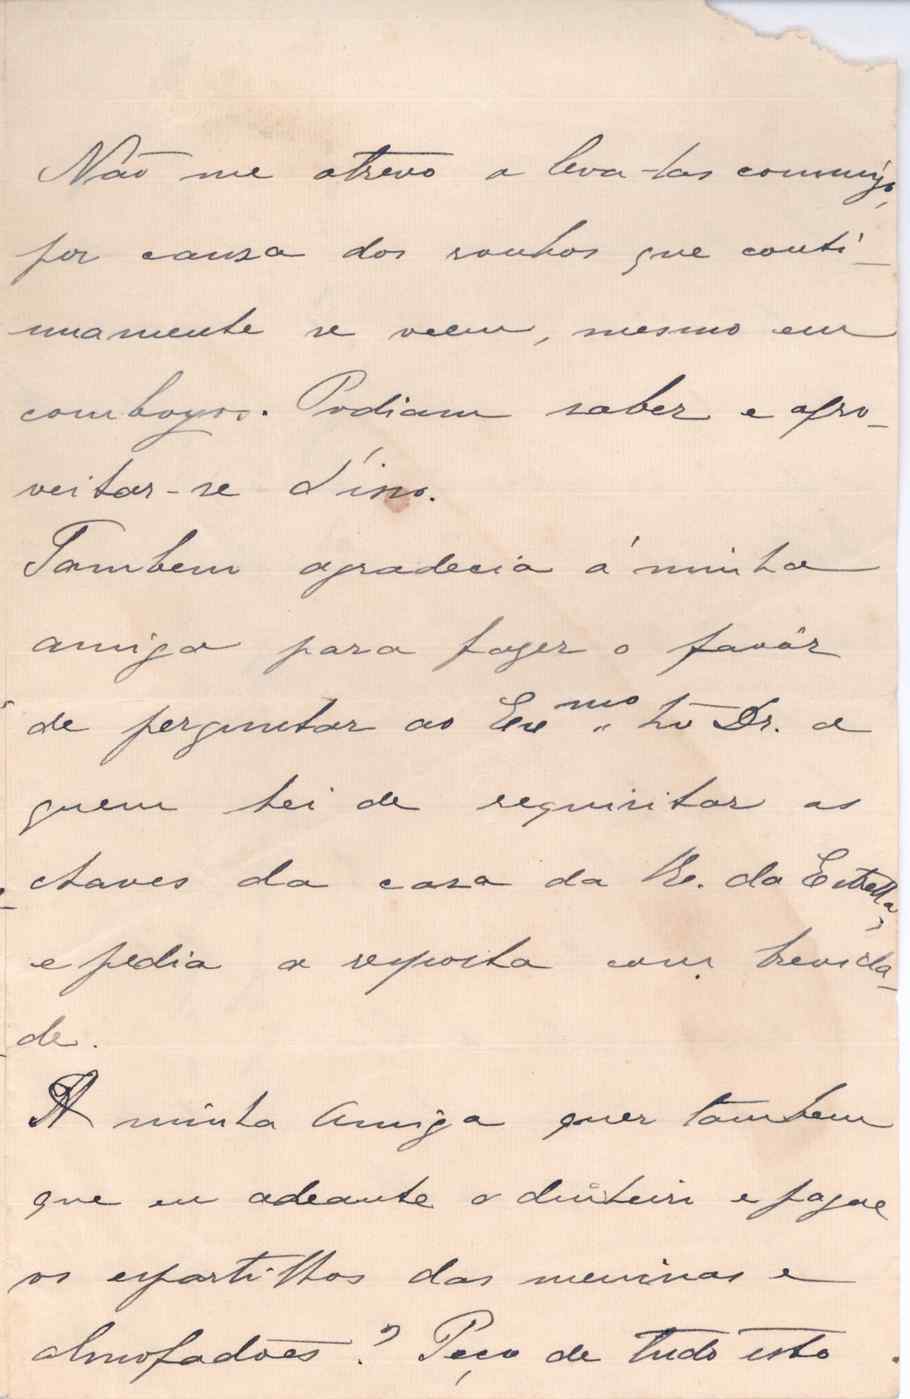 Não me atrevo a leva-las commigo,
por causa dos roubos que conti-
nuamente se veem, mesmo em
comboyos. Podiam saber e apro-
veitar-se d'isso.
Tambem agradecia á minha
amiga para fazer o favôr
de perguntar ao Exmo Dr. a
quem hei de requisitar as
chaves da casa da R. da Estrella,
e pedia a resposta com brevida-
de.
A minha Amiga quer tambem
que eu adeante o dinheiro e pague
os espartilhos das meninas e
almofadões? Peço de tudo isto